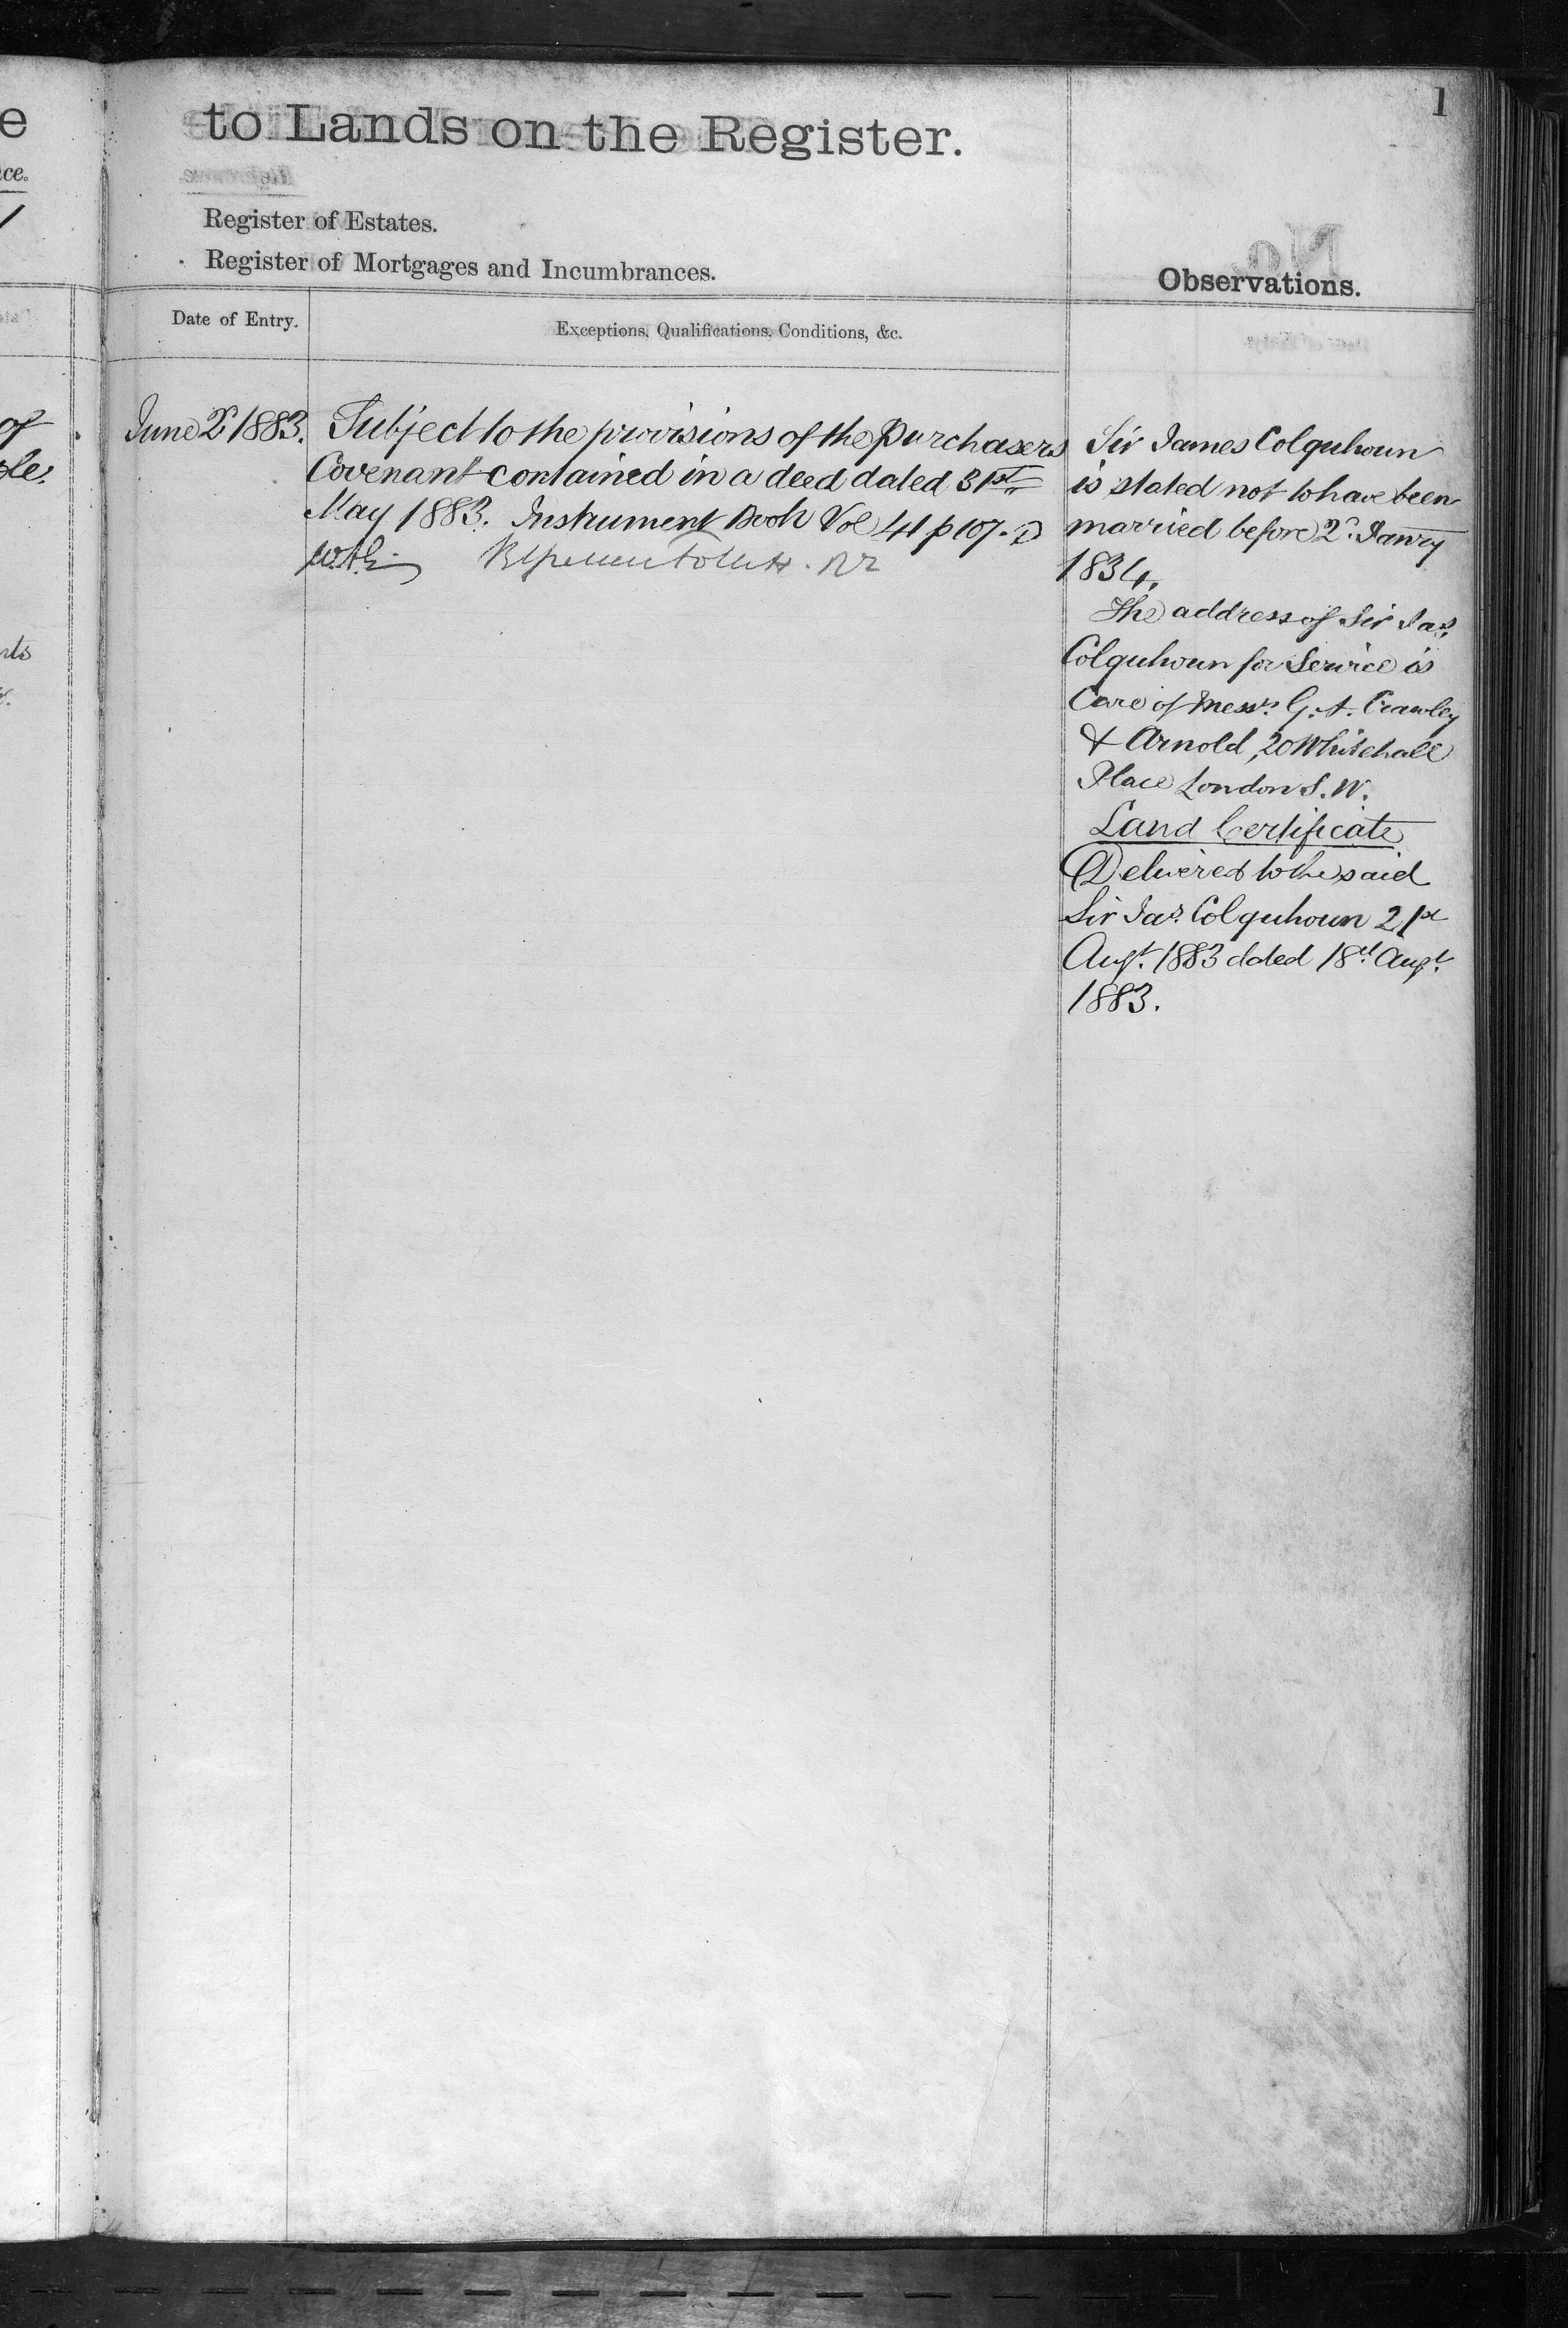 e
ce.
of
ple.
nts
1
to Lands on the Register.
Register of Estates.
Register of Mortgages and Incumbrances.
Observations.
Date of Entry.
Exceptions, Qualifications, Conditions, &c.
June 2d 1883.
Subject to the provisions of the Purchasers
Covenant contained in a deed dated 31st
May 1883. Instrument Book Vol 41 p 107.
Sir James Colquhoun
is stated not to have been
married before 2d. Janry
1834.
The address of Sir Jas.
Colquhoun for Service is
Care of Messrs. G. A. Crawley
& Arnold, 20 Whitehall
Place London S. W.
Land Certificate
Delivered to the said
Sir Jas. Colquhoun 21st
Augt. 1883 dated 18th Augt.
1883.